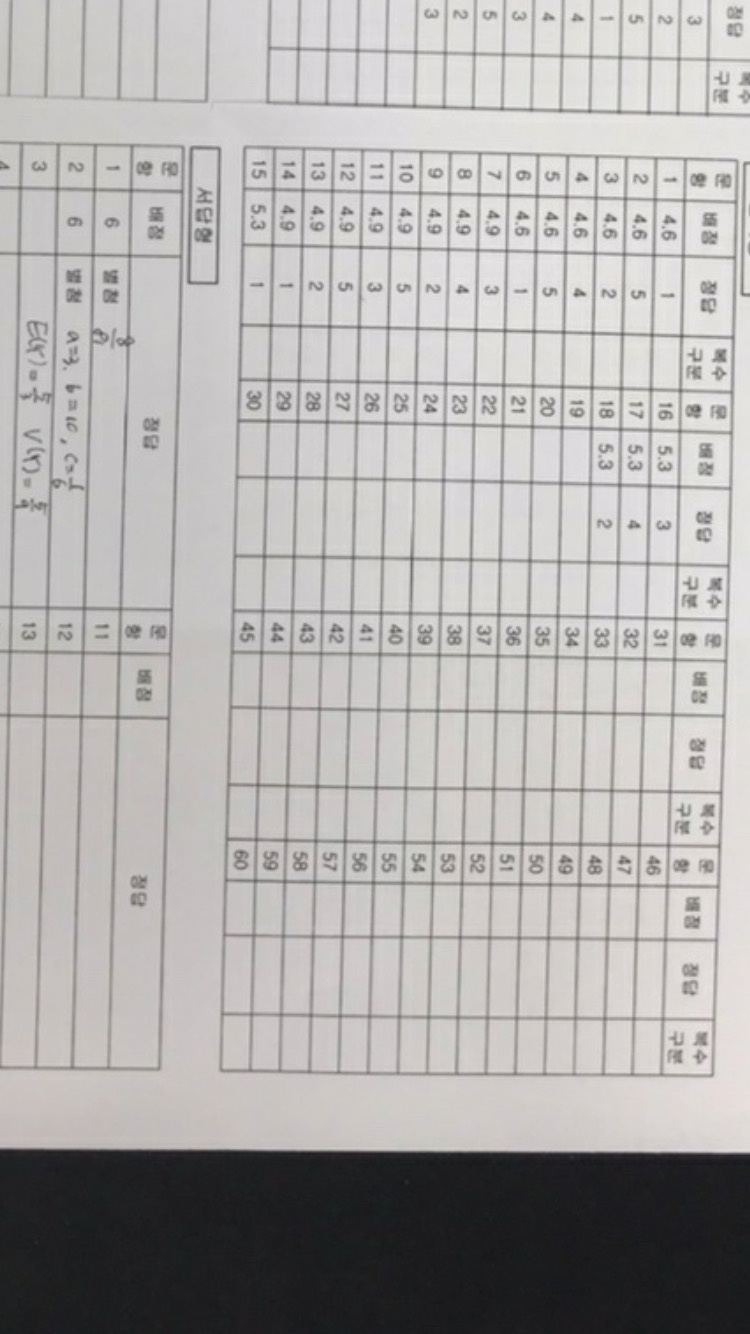 정답 복수 구분
3
2
5
1
4
4
3
5
2
3
문항 배점 정답 복수구분 문항 배점 정답 복수구분 문항 배점 정답 복수구분 문항 배점 정답 복수구분
1 4.6 1 16 5.3 3 31 46
2 4.6 5 17 5.3 4 32 47
3 4.6 2 18 5.3 2 33 48
4 4.6 4 19 34 49
5 4.6 5 20 35 50
6 4.6 1 21 36 51
7 4.9 3 22 37 52
8 4.9 4 23 38 53
9 4.9 2 24 39 54
10 4.9 5 25 40 55
11 4.9 3 26 41 56
12 4.9 5 27 42 57
13 4.9 2 28 43 58
14 4.9 1 29 44 59
15 5.3 1 30 45 60
서답형
문항 배점 정답 문항 배점 정답
1 6 별첨 8/81 11
2 6 별첨 a=3, b=10, c=1/6 12
3 E(X)=5/3 V(X)=5/9 13
4